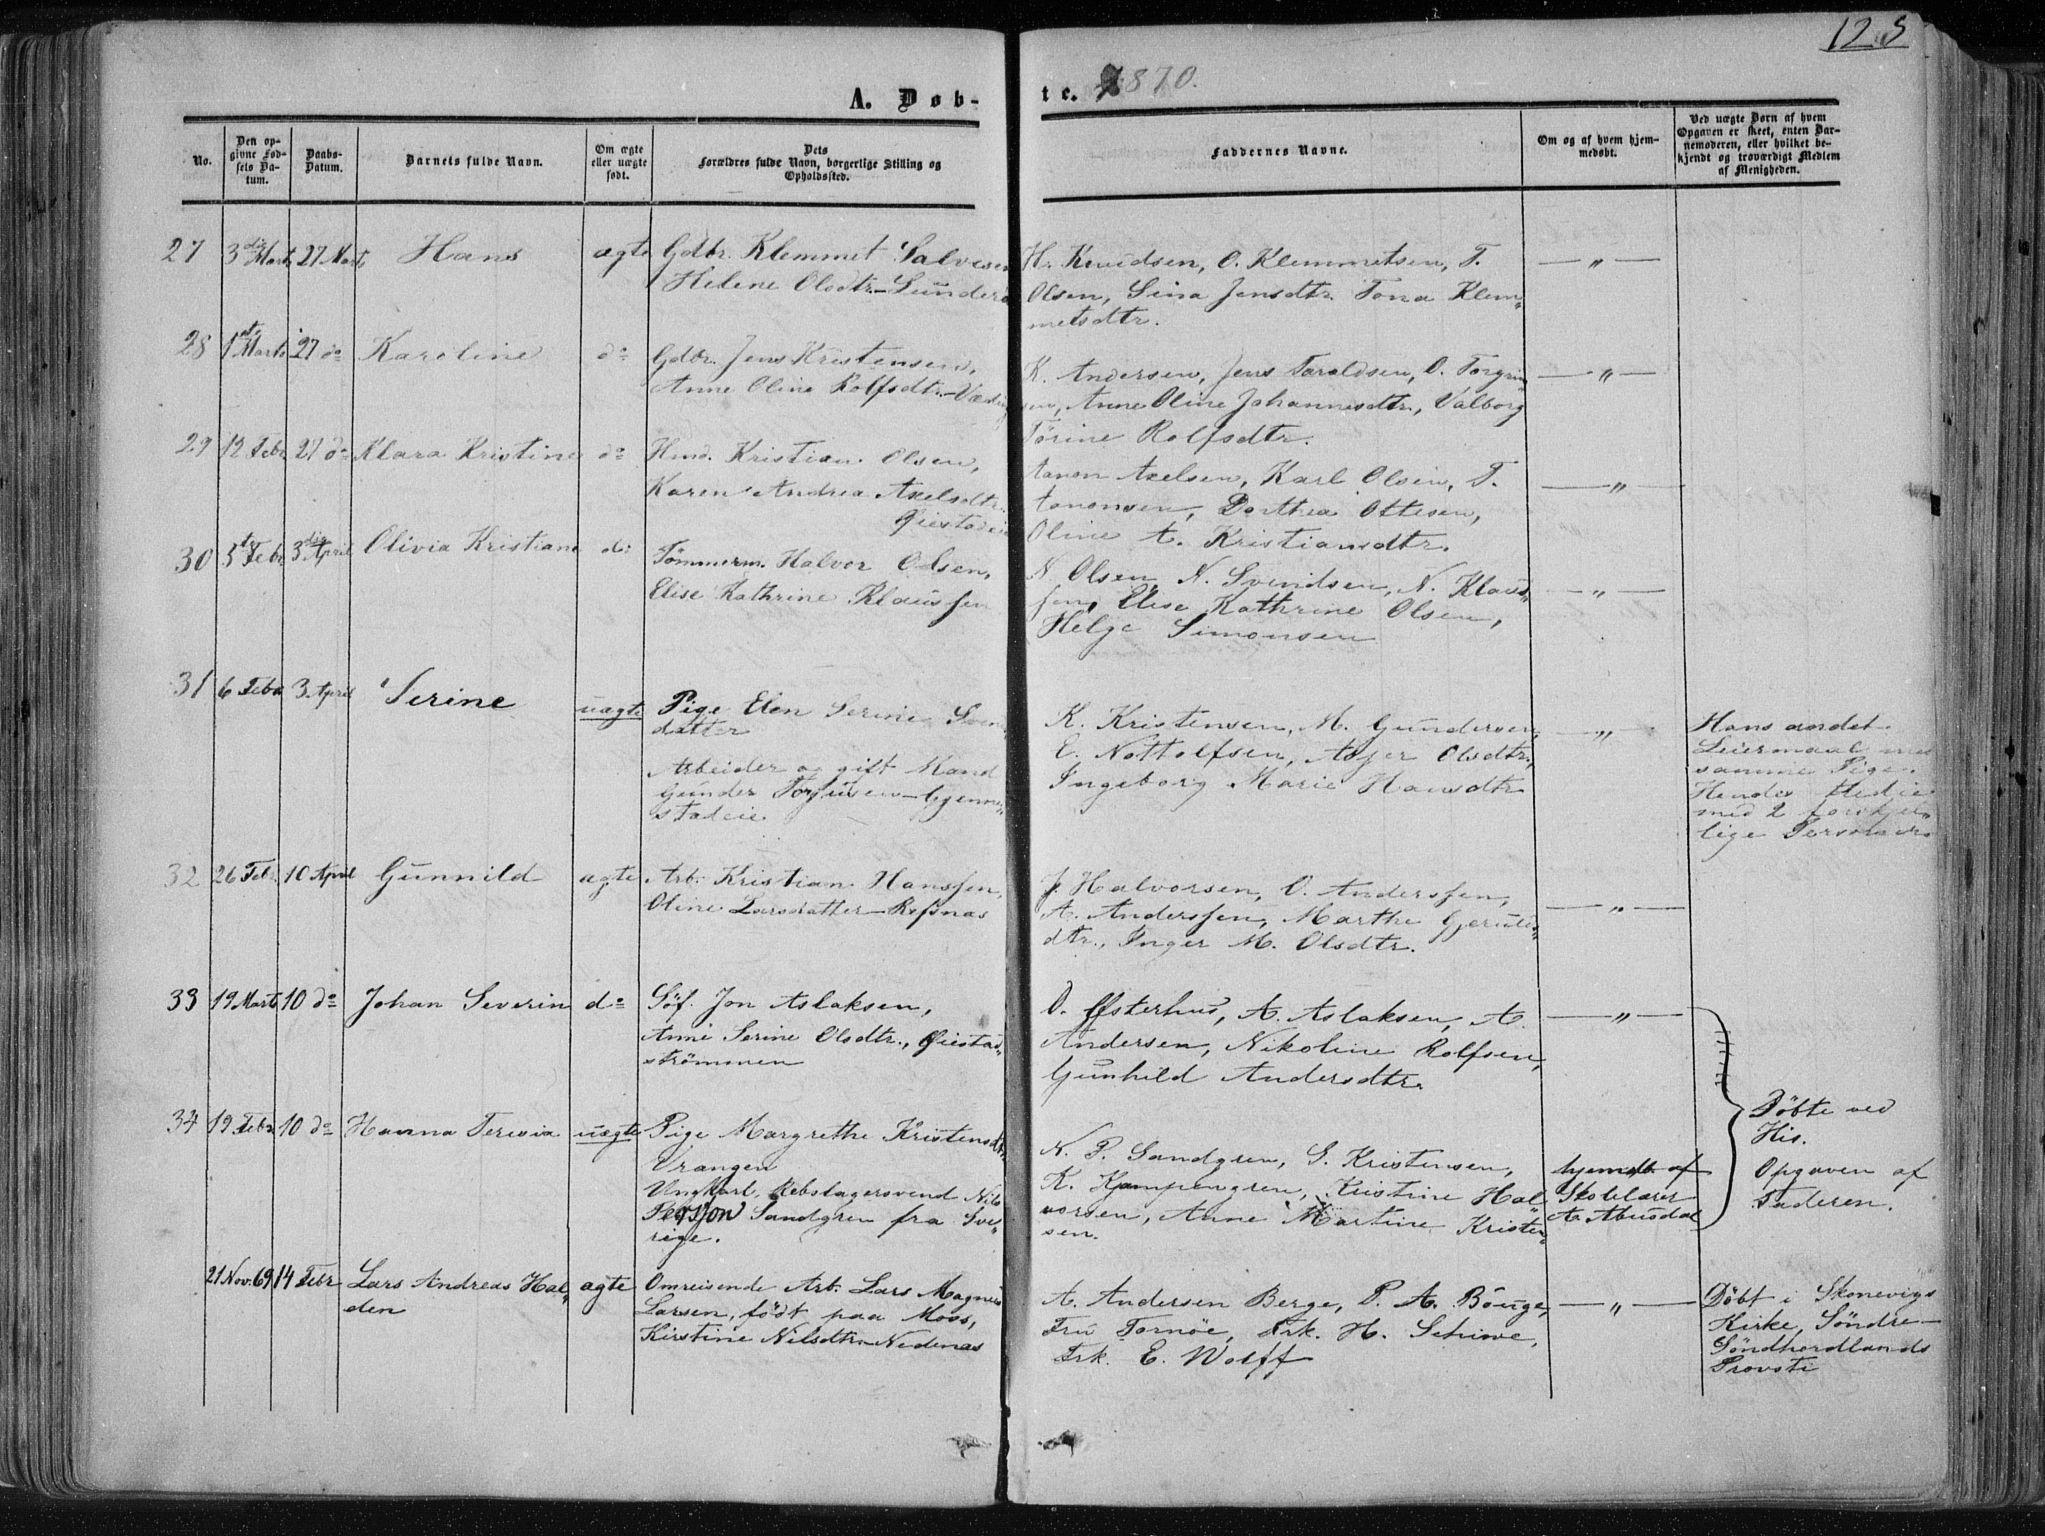 125
A. Døb-
te. 1870.
No.
Den op-
givne Fød-
sels Da-
tum.
Daabs-
Datum.
Barnets fulde Navn.
Om ægte
eller uægte
født.
Dets
Forældres fulde Navn, borgerlige Stilling og
Opholdssted.
Faddernes Navne.
Om og af hvem hjem-
medøbt.
Ved uægte Børn af hvem
Opgaven er skeet, enten Bar-
nemoderen, eller hvilket be-
kjendt og troværdigt Medlem
af Menigheden.
27 3die Marts 27 Marts Hans ægte Gdbr. Klemmet Salvesen
Helene Olsdtr.
H. Knudsen, O. Klemmetsen, T.
Olsen, Sina Jensdtr. Tona Klem-
metsdtr.
— " —
28 1ste Marts 27 do Karoline do Gdbr. Jens Kristensen,
Anne Oline Rolfsdtr.
K. Andersen, Jens Taraldsen, O. Torgrim
sen, Anne Oline Johannesdtr, Valborg
Törine Rolfsdtr.
— " —
29 12 Febr. 27 do Klara Kristine do Hmd. Kristian Olsen,
Karen Andrea Axelsdtr.
Öiestadeie
Aanon Axelsen, Karl Olsen, T.
Aanonsen, Dorthea Ottesen,
Oline A. Kristiansdtr.
— " —
30 5te Febr. 3die April Olivia Kristiane do Tömmerm. Halvor Olsen,
Elise Kathrine Klaussen
N Olsen, N. Svendsen, N. Klaus-
sen, Elise Kathrine Olsen,
Helge Simonsen
— " —
31 6 Febr 3 April Serine uægte Pige Elen Serine Sven
datter
Arbeider og gift Mand
Gunder Torjusen - Gjenne-
stadeie
K. Kristensen, M. Gundersen,
E. Nottolfsen, Asjer Olsdtr.,
Ingeborg Marie Hansdtr
— " —
Hans andet
Leiermaal med
samme Pige.
Hendes tredie
med 2 forskjel-
lige Personer
32 26 Febr. 10 April Gunnild ægte Arb. Kristian Hanssen,
Oline Larsdatter - Refsnæs
J. Halvorsen, O. Anderssen,
A. Anderssen, Marthe
dtr., Inger M. Olsdtr.
— " —
33 19 Marts 10 do Johan Severin do Söf. Jon Aslaksen,
Anne Serine Olsdtr., Öiestad-
strömmen
O. Østerhus, A. Aslaksen, A.
Andersen, Nikoline Rolfsen,
Gunhild Andersdtr.
— " —
34 19 Febr. 10 do Hanna Teresia uægte Pige Margrethe Kristensdtr.
Vrangen
Ungkarl, Rebslagersvend Nils
Persson Sandgren fra Sve-
rige.
N. P. Sandgren, G. Kristensen,
K. Kampengren, Kristine Hal-
vorsen, Anne Martine Kristen-
sen.
hjemdt. af
Skolelærer
A. Abusdal
Döbte ved
His.
Opgaven af
Faderen.
21 Nov. 69 14 Febr Lars Andreas Hal-
den
ægte Omreisende Arb. Lars Magnus
Larsen, födt paa Moss,
Kirstine Nilsdtr. Nedenæs
A. Andersen Berge, P. A. Bouge,
Fru Tornöe, Frk. H. Schiwe,
Frk. E. Wolff
— " —
Döbt i Skonevigs
Kirke, Söndre-
Söndhordlands
Provsti